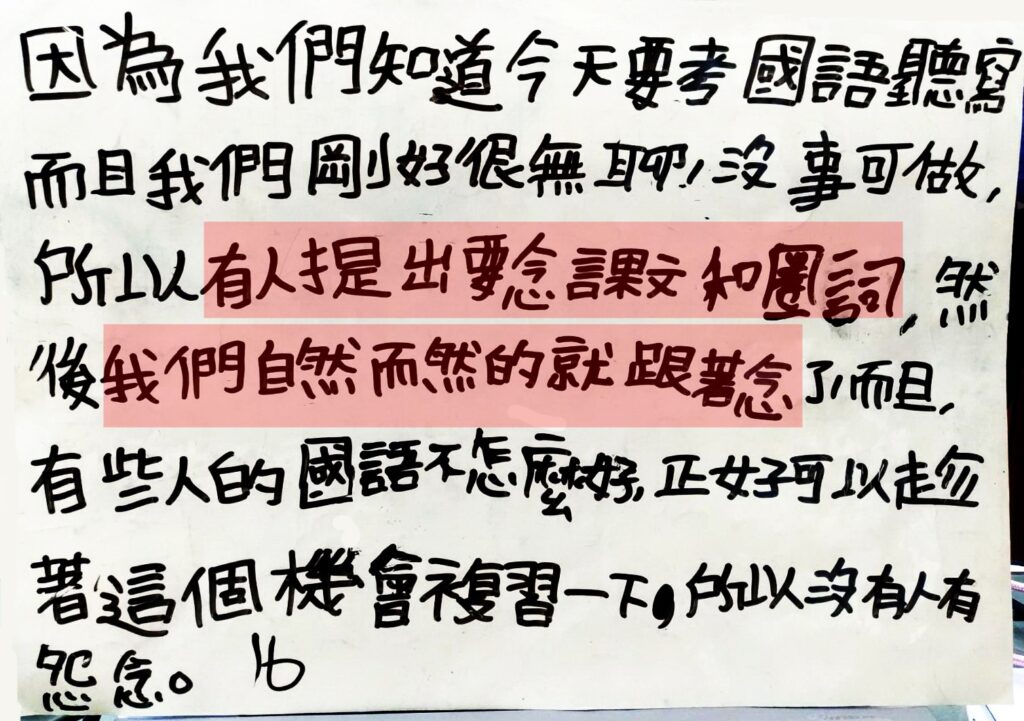 因為我們知道今天要考國語聽寫
而且我們剛好很無聊,沒事可做,
所以有人提出要念課文和圈詞,然
後我們自然而然的就跟著念了,而且,
有些人的國語不怎麼好,正好可以趁
著這個機會複習一下,所以沒有人有
怨念。 16